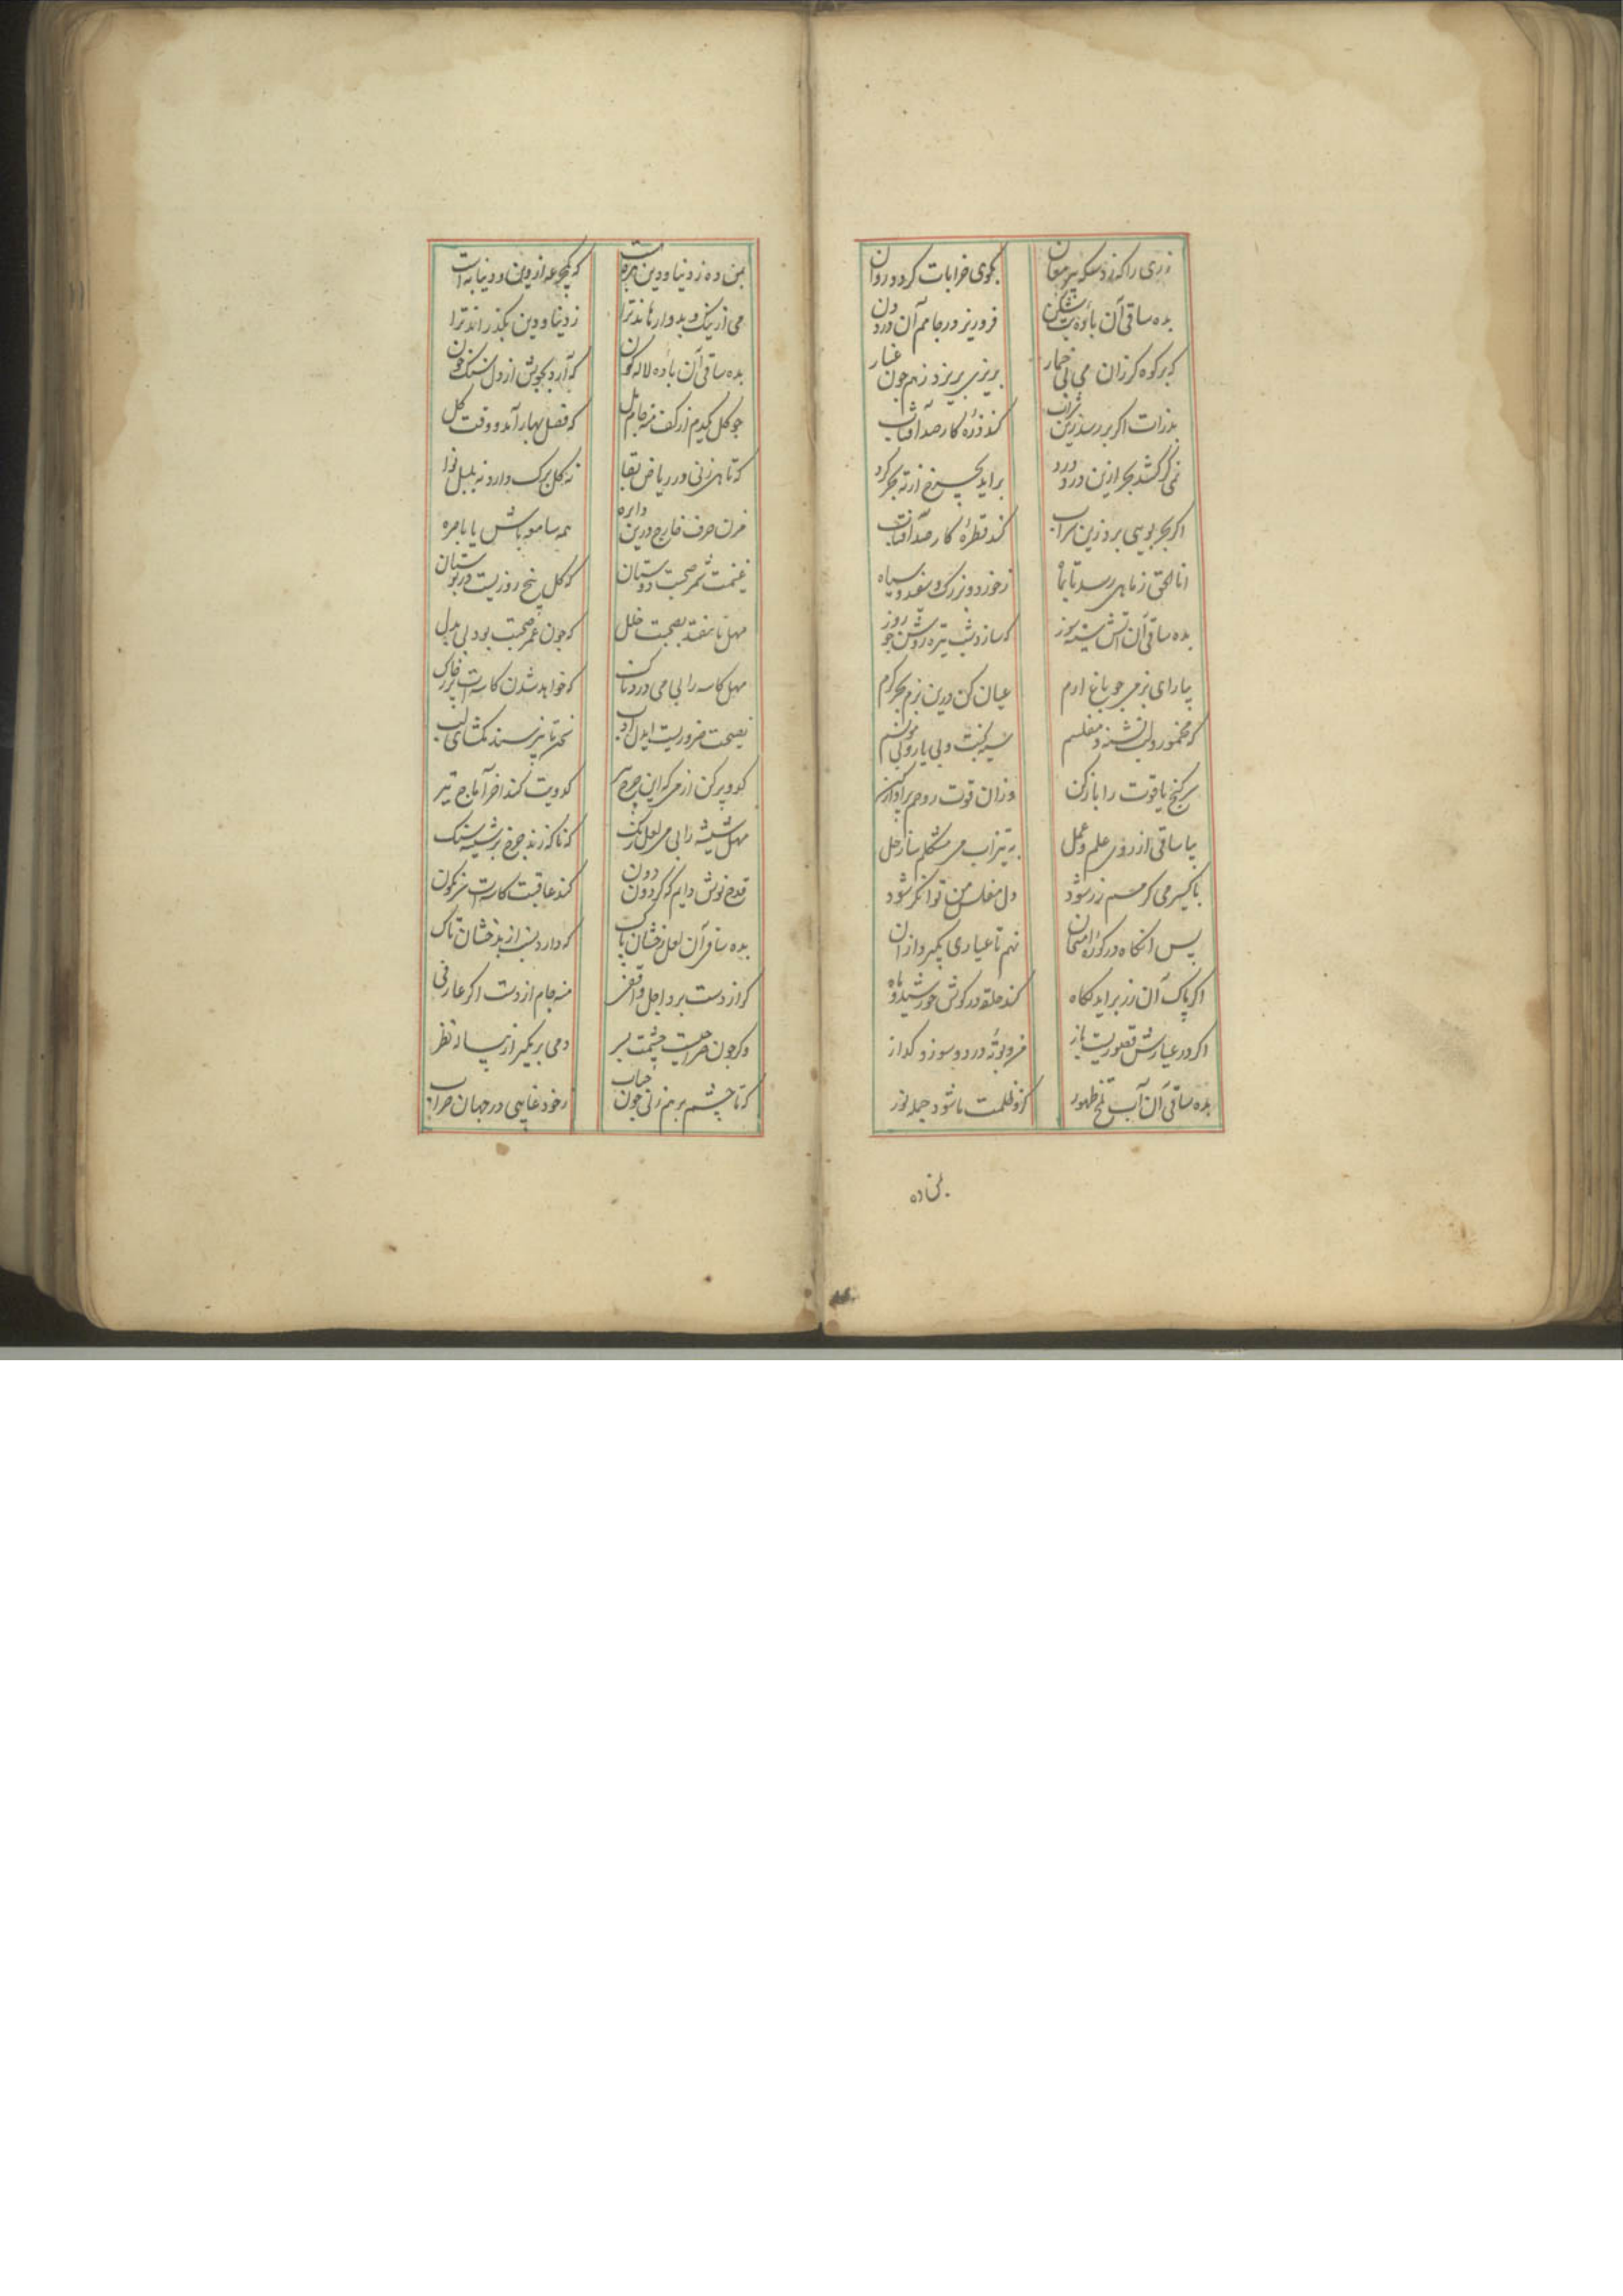 زری را که زد سکه پیر مغان بکوی خرابات کردد روان
بده ساقی آن باده بت شکن فروریز در جامم آن درد دن
که بر کوه کر زان می بی خمار بریزی بریزد ز هم چون غبار
بذرات اکر بر رسد زین شراب کند ذره کار صد آفتاب
نمی کر کشد بحر ازین درد درد براید بچرخ از ته بحر کرد
اکر بحر بویی برد زین سراب کند قطره کار صد آفتاب
انا الحق ز ماهی رسد تا بماه ز خورد و بزرک و سفید و سیاه
بده ساقی آن آتش شیشه سوز که سازد شب تیره روشن چو روز
بیارای بزمی چو باغ ارم عیان کن درین بزم بحر کرم
که مخمور و لب تشنه و مفلسم سیه بخت و بی یار و بی مونسم
سر کنج یاقوت را باز کن وزان قوت روحم
بیا ساقی از روی علم و عمل به تیزاب می مشکلم ساز حل
باکسیر می کر مسم زر شود دل مفلس من توانکر شود
پس انکاه در کوره امتحان نهم تا عیاری بکیرد از ان
اکر پاک آن زر براید ز کاه کند حلقه در کوش خورشید و ماه
اکر در عیارش قصوریست باز من و بوته درد و سوز و کداز
بده ساقی آن آب تلخ طهور کزو ظلمت ما شود جمله نور
بمن ده
بمن ده ز دنیا و دین بهره ست که یکجرعه از دین و دنیا به است
می از نیک و بد وارهاند ترا ز دنیا و دین بکذراند ترا
بده ساقی آن باده لاله کون که آرد بجوش از دل سنک خون
چو کل یکدم از کف منه جام مل که فصل بهار آمد و وقت کل
که تا هی زنی در ریاض بقا نه کل برک دارد نه بلبل نوا
مزن حرف خارج درین دایره همه سامعه باش یا باصره
غنیمت شمر صحبت دوستان که کل پنج روزیست در بوستان
مهل تا بیفتد بصحبت خلل که چون عمر صحبت بود بی بدل
مهل کاسه را بی می دردناک که خواهد شدن کاسه ات پر ز خاک
نصیحت ضروریست ایدل ادب سخن تا نپرسند مکشای لب
کدو پر کن از می که این چرخ پیر کدویت کند اخر آماج تیر
مهل شیشه را بی می لعل رنک که ناکه زند چرخ بر شیشه سنک
قدح نوش دایم که کردون دون کند عاقبت کاسه ات سرنکون
بده ساقی آن لعل رخشان پاک که دارد نسب از بدخشان تاک
کر از دست برد اجل واقفی منه جام از دست اکر عارفی
وکر چون صراحیست چشمت بسر دمی بر مکیر از پیاله نظر
که تا چشم بر هم زنی چون حباب ز خود غایبی در جهان خراب